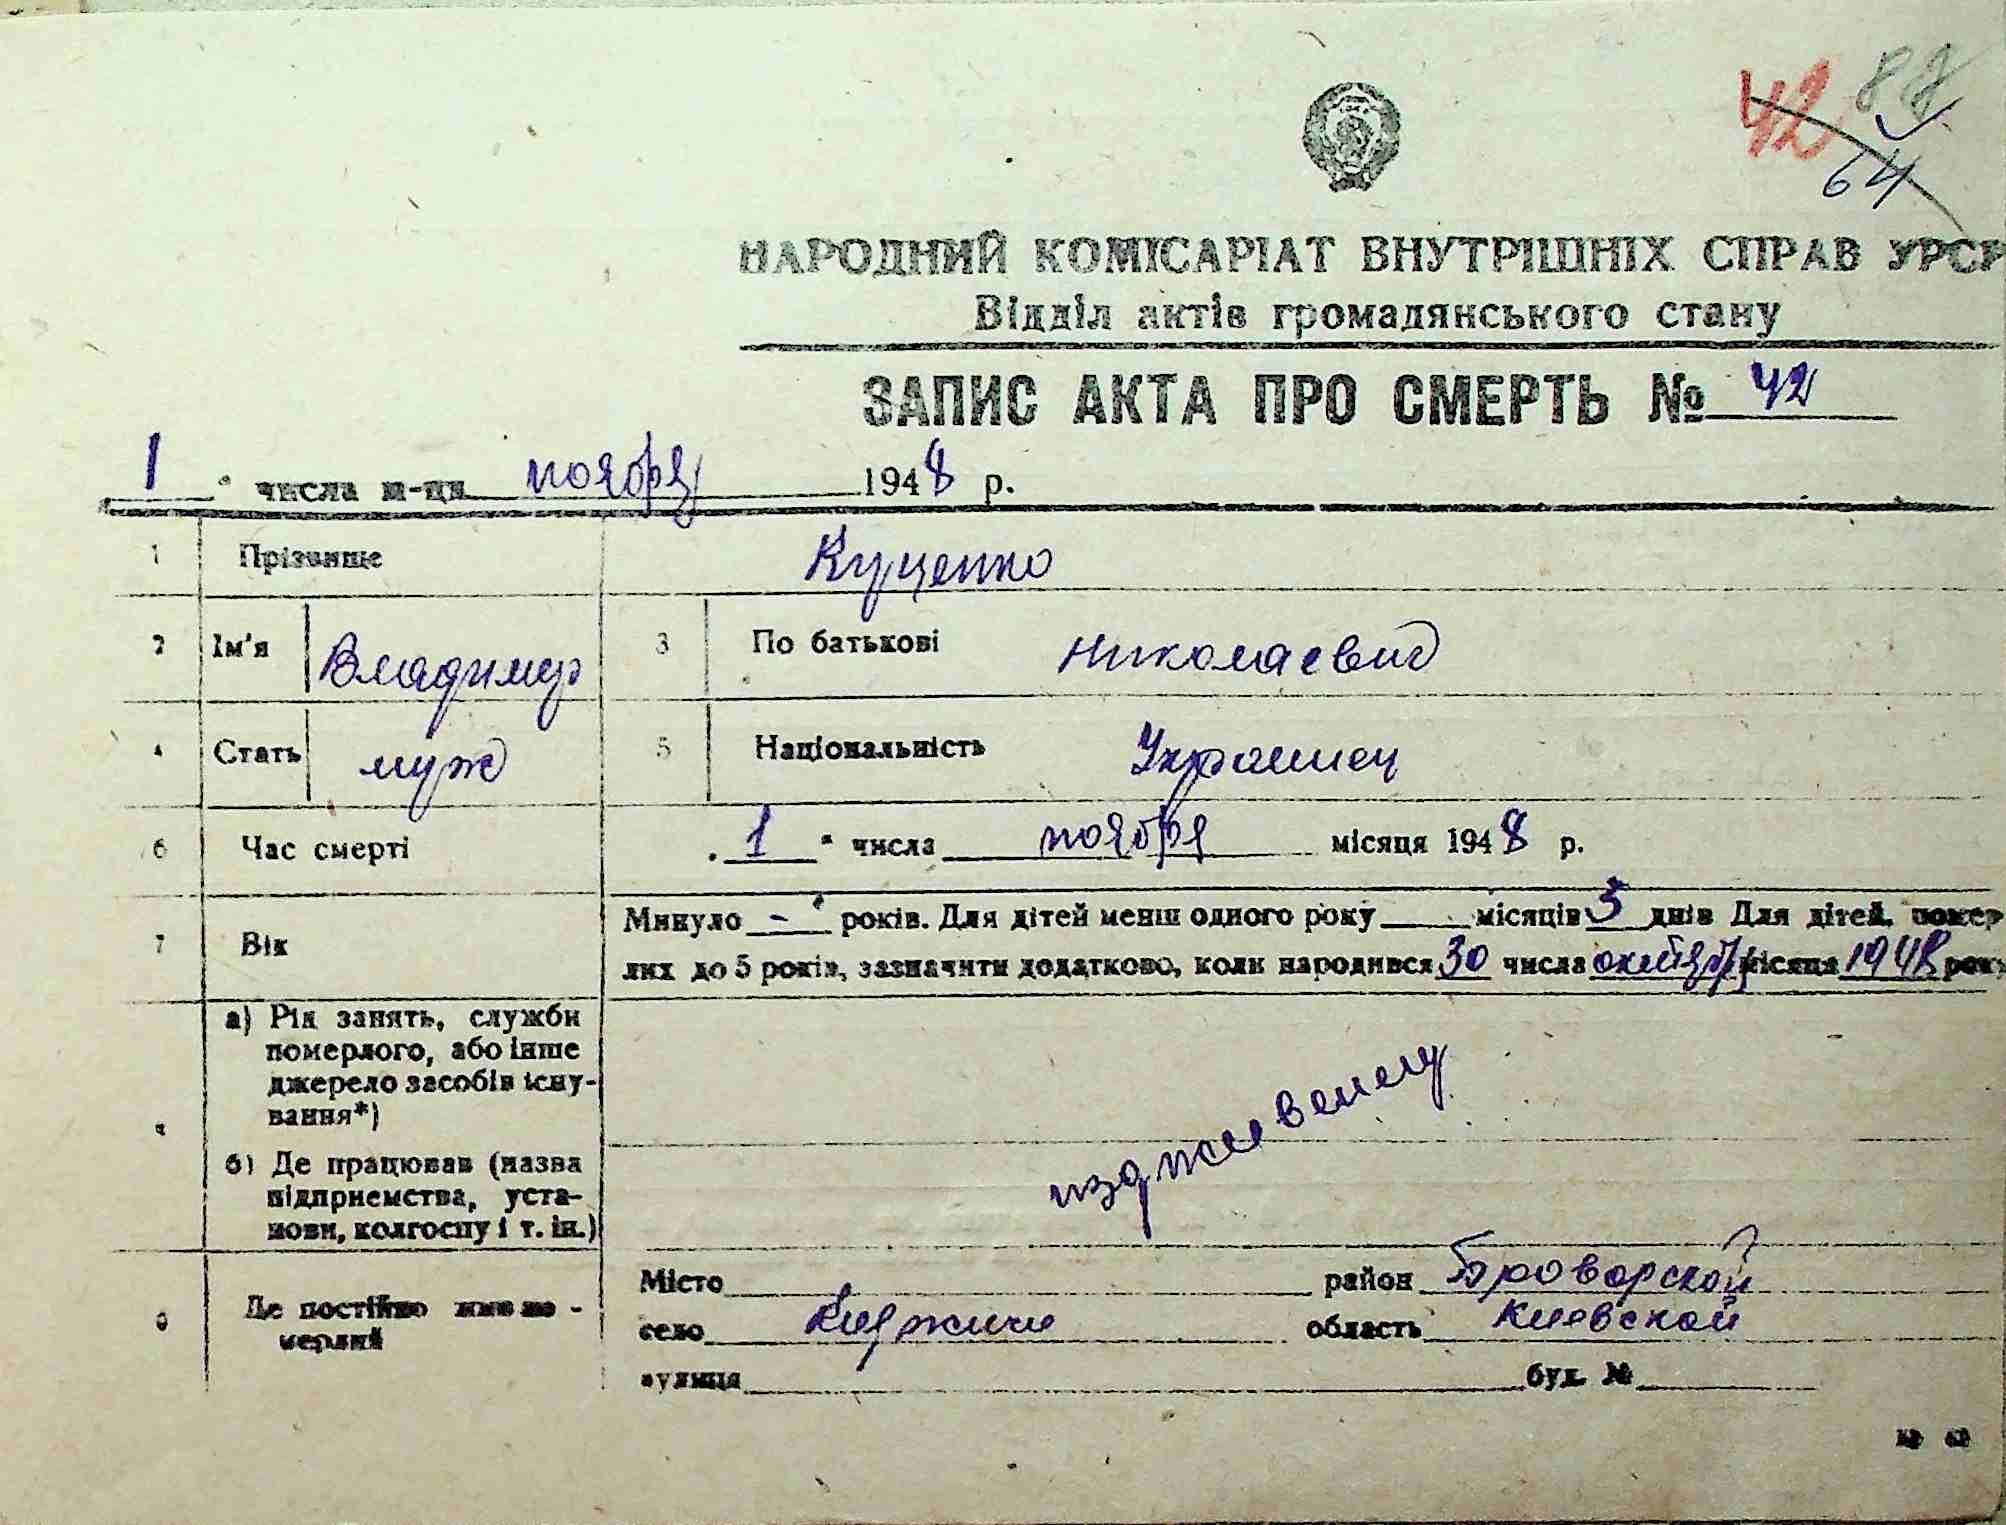 42 87
64
НАРОДНИЙ КОМІСАРІАТ ВНУТРІШНІХ СПРАВ УРСР
Відділ актів громадянського стану
ЗАПИС АКТА ПРО СМЕРТЬ № 42
1 " числа м-ця ноября 1948 р.
1 Прізвище Куценко
2 Ім'я Владимир 3 По батькові Николаевич
4 Стать муж 5 Національність Украинец
6 Час смерті " 1 " числа ноября місяця 1948 р.
7 Вік Минуло - років. Для дітей менш одного року місяців 3 днів Для дітей, помер-
лих до 5 років, зазначити додатково, коли народився 30 числа октября місяця 1948 року
а) Рід занять, служби
померлого, або інше
джерело засобів існу-
вання*)
иждевенец
б) Де працював (назва
підприємства, уста-
нови, колгоспу і т. ін.)
9 Де постійно жив по-
мерлий
Місто район Броварской
село Княжичи область Киевской
вулиця буд. №